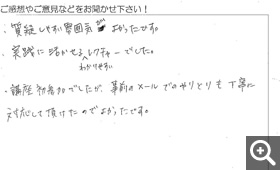 ご感想やご意見などをお聞かせ下さい!
・質疑しやすい雰囲気がよかったです。
・実践に活かせるレクチャーでした。
わかりやすい
・講座初参加でしたが、事前のメールでのやりとりも丁寧に
対応して頂けたのでよかったです。